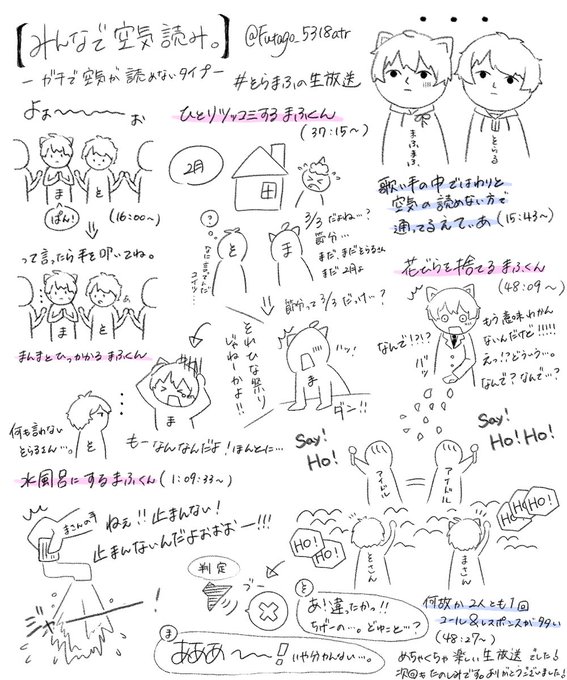 【みんなで空気読み。】
ーガチで空気が読めないタイプー
@Futago_5318atr
#とらまふの生放送
よぉ〜〜〜〜 ぉ
ま
と
ぱん!
(16:00〜)
って言ったら手を叩いてね。
ま
と
まんまとひっかかるまふくん
ひとりツッコミするまふくん
(37:15〜)
2月
3/3だよね…?
節分…
まだ、まだとらさん
まだ2月よ
?
と
ま
なに言ってんだ
コイツ…
節分って3/3だっけ…?
それひな祭り
じゃねーかよ!!
ハッ!
ま
ダン!!
何も言わない
とらるさん…。
と
ま
もーなんなんだよ!ほんとに…
・・・
まふまふ
となる
歌い手の中でわりと
空気の読めない方で
通ってるえてぃあ(15:43〜)
花びらを捨てるまふくん
(48:09〜)
なんで!?!?
バッ
もう意味わかん
ないんだけど!!!!!
えっ!?どうっう…。
なんで?なんで…?
Say!
Ho!
Say!
Ho! Ho!
アイドル
=
アイドル
HO!
HO!
HO!
HO!
HO!
とさん
まさん
何故か2人とも1回
コール&レスポンスがタタい
(48:27〜)
水風呂にするまふくん(1:09:33〜)
まさんの手
ねぇ!!止まんない!
止まんないんだよおおおー!!!
判定
ブー
と
あ!違ったかっ!!
ちげーの…。どゆこと…?
ま
あああ〜〜!いや分かんない…。
めちゃくちゃ楽しい生放送でした!
次回もたのしみです。ありがとうございました!